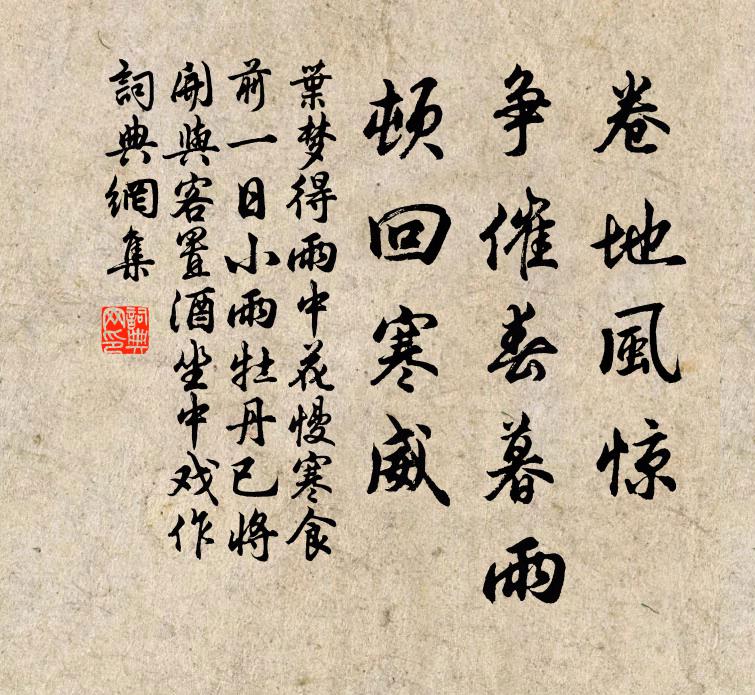 卷地風惊
争催春暮雨
頓回寒威
葉梦得雨中花慢寒食
前一日小雨牡丹已將
開與客置酒坐中戏作
詞典網集
詞典
网印